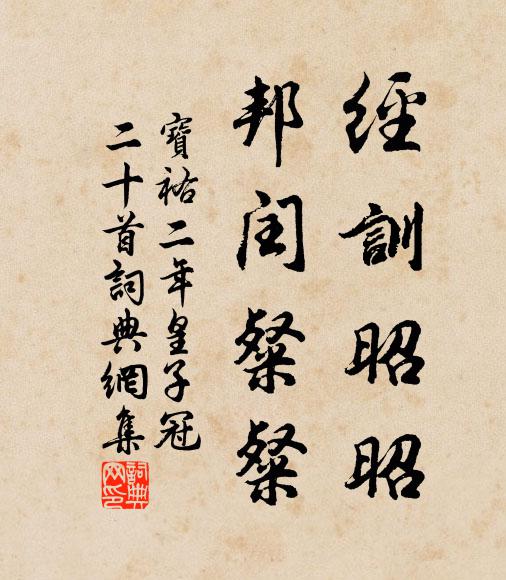 經訓昭昭
邦閏粲粲
寶祐二年皇子冠
二十首詞典網集
詞典網印